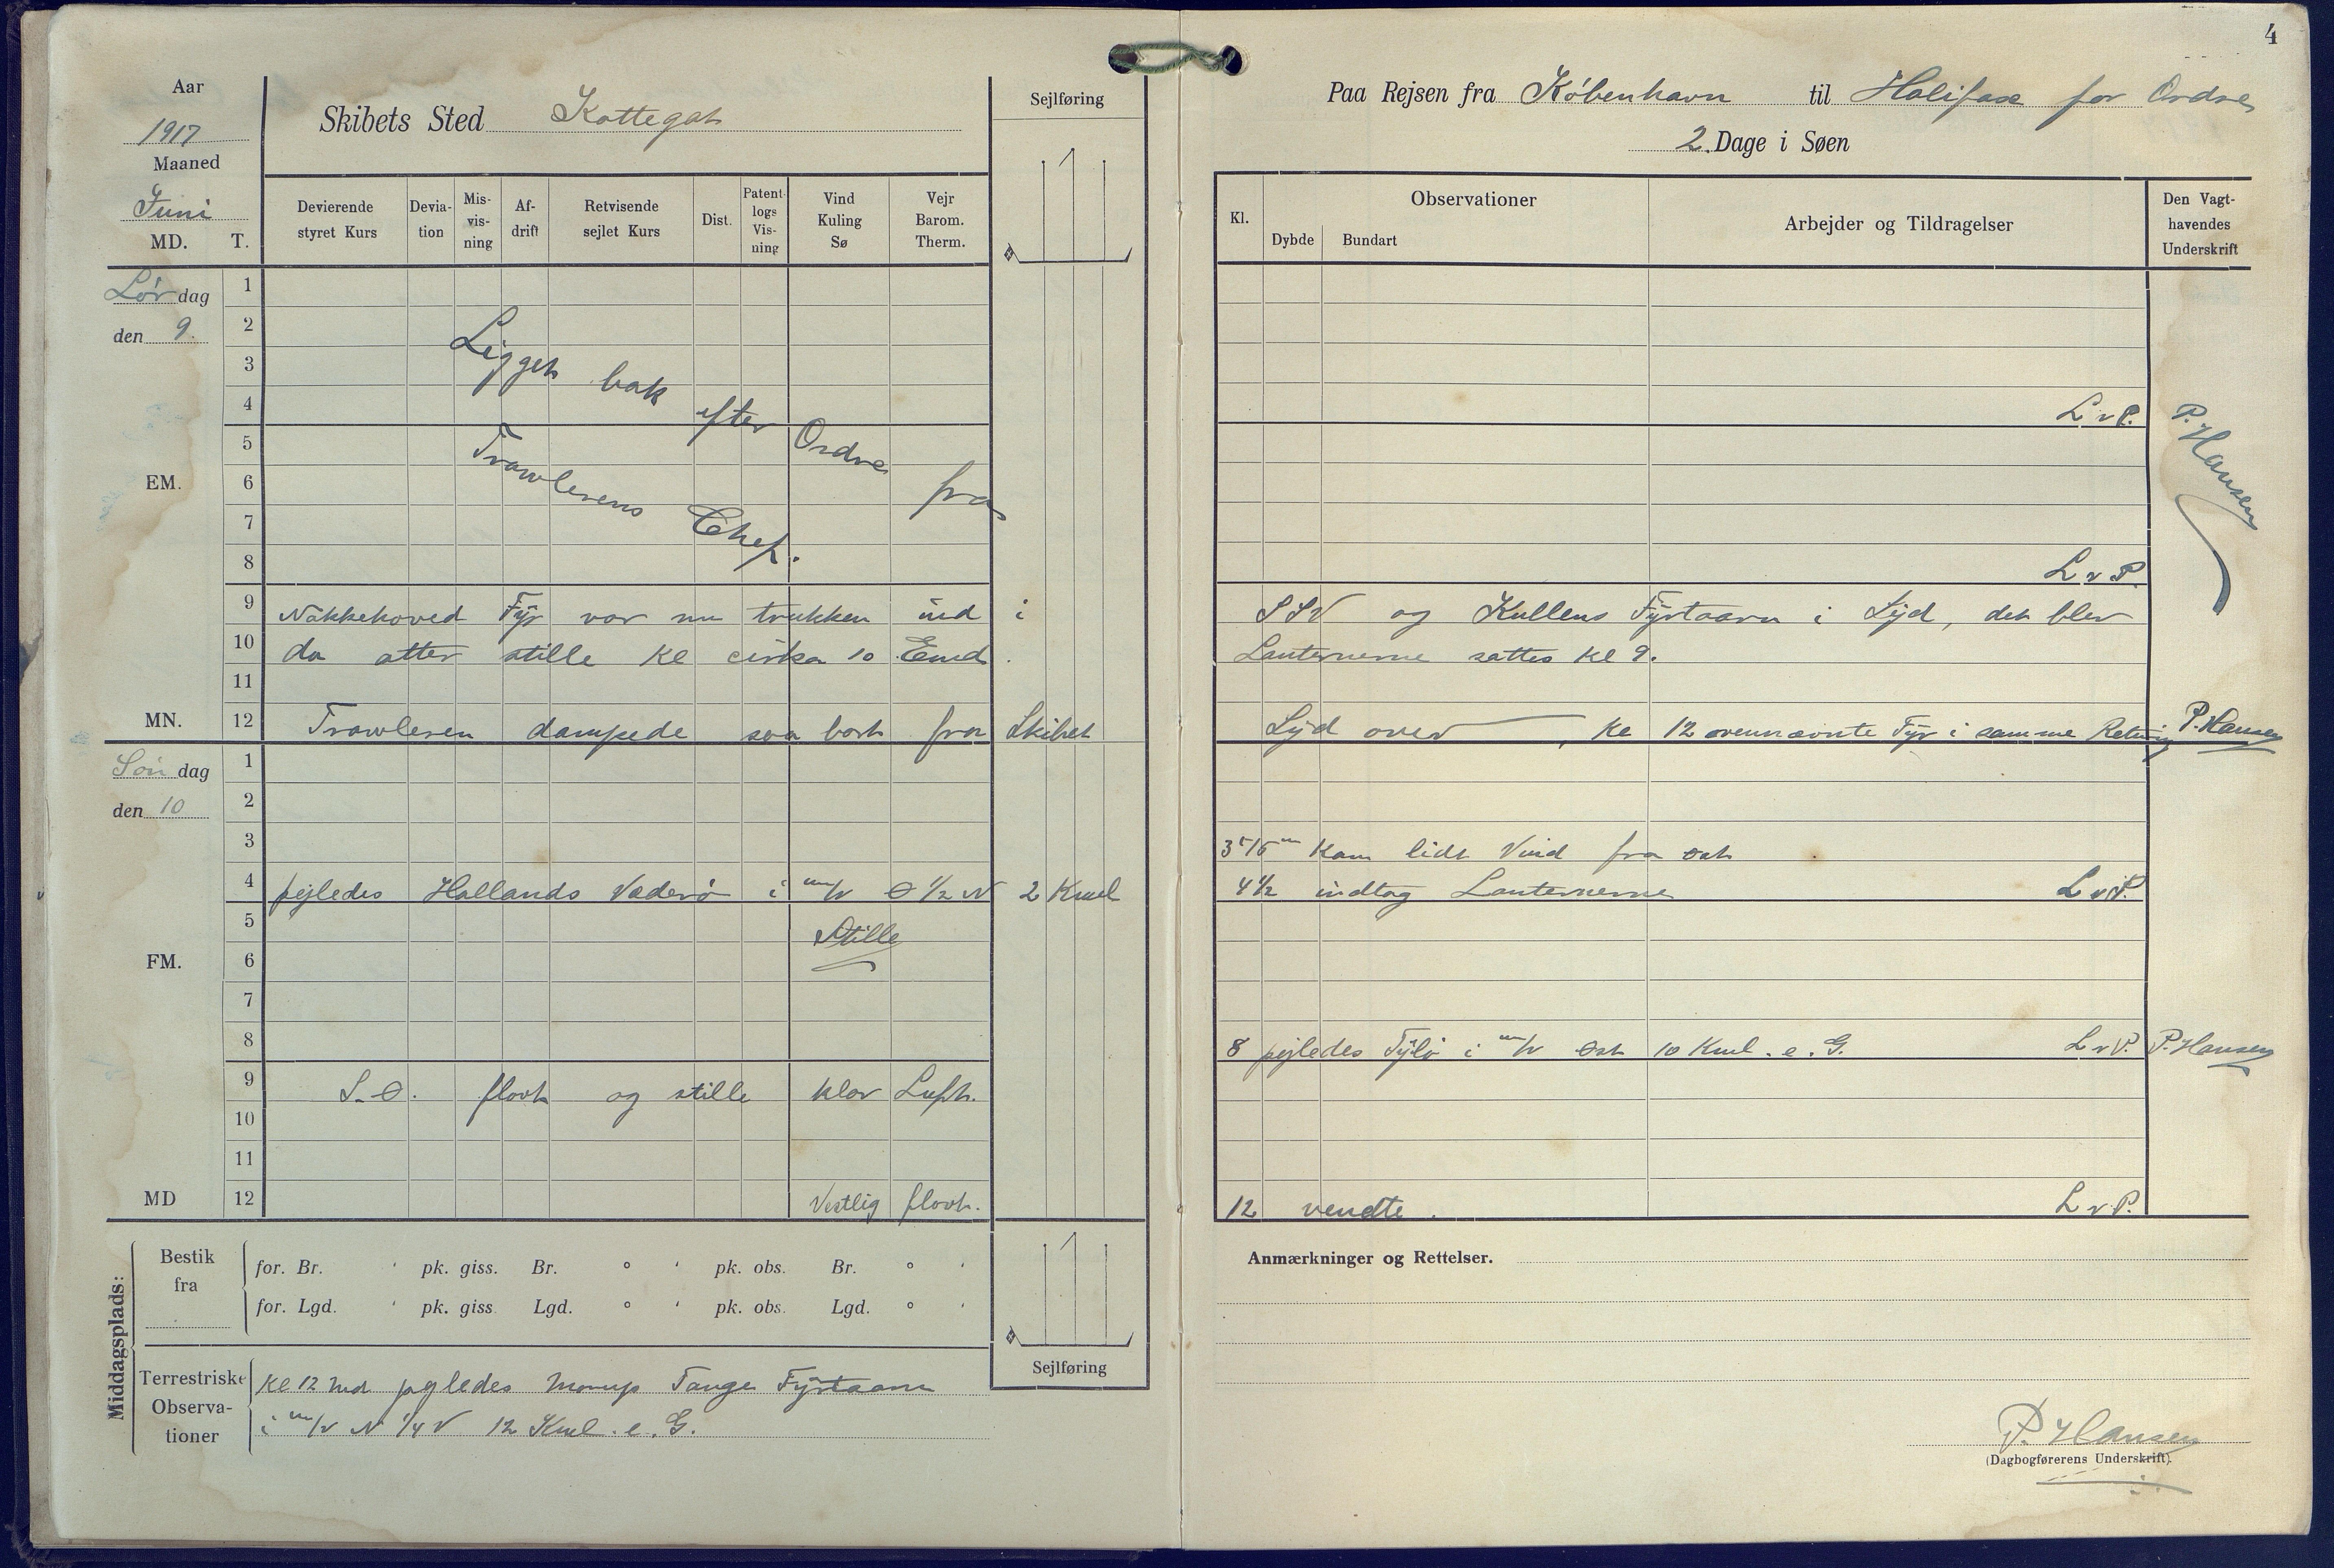 4
Aar
1917
Maaned
Juni
MD. T.
Skibets Sted Kattegat
Sejlføring
Devierende styret Kurs
Devia-tion
Mis-vis-ning
Af-drift
Retvisende sejlet Kurs
Dist.
Patent-logs Vis-ning
Vind Kuling Sø
Vejr Barom. Therm.
Lørdag
den 9.
1
2
3
4
5
EM. 6
7
8
9
10
11
MN. 12
Ligget bak efter Ordre fra
Trawlerens Chef.
Nakkehoved Fyr var nu trukken ind i
da atter stille Kl cirka 10 Emd.
Trawleren dampede saa bort fra Skibet
Søndag
den 10
1
2
3
4
5
FM. 6
7
8
9
10
11
MD 12
pejledes Hallands Vaderø i m/v O 1/2 N 2 Kml
Stille
S.O. flovt og stille klar Luft.
Vestlig flovt.
Middagsplads:
Bestik fra
for. Br. ' pk. giss. Br. ° ' pk. obs. Br. ° '
for. Lgd. ' pk. giss. Lgd. ° ' pk. obs. Lgd. ° '
Sejlføring
Terrestriske Observa-tioner
Kl 12 Md pejledes Morups Tange Fyrtaarn
i m/v N 1/4 V 12 Kml. e. G.
Paa Rejsen fra København til Halifax for Ordre
2. Dage i Søen
Kl.
Observationer
Dybde Bundart
Arbejder og Tildragelser
Den Vagt-havendes Underskrift
L v P.
P. Hansen
L v P.
SSV og Kullens Fyrtaarn i Syd, det blev
Lanternerne sattes Kl 9.
Syd over, Kl 12 ovennævnte Fyr i samme Retning P. Hansen
3 t 15 m kom lidt Vind fra ost
4 1/2 indtog Lanternerne L v P.
8 pejledes Tylø i m/v Ost 10 Kml. e. G. L v P. P. Hansen
12 vendte. L v P.
Anmærkninger og Rettelser.
P. Hansen
(Dagbogførerens Underskrift).